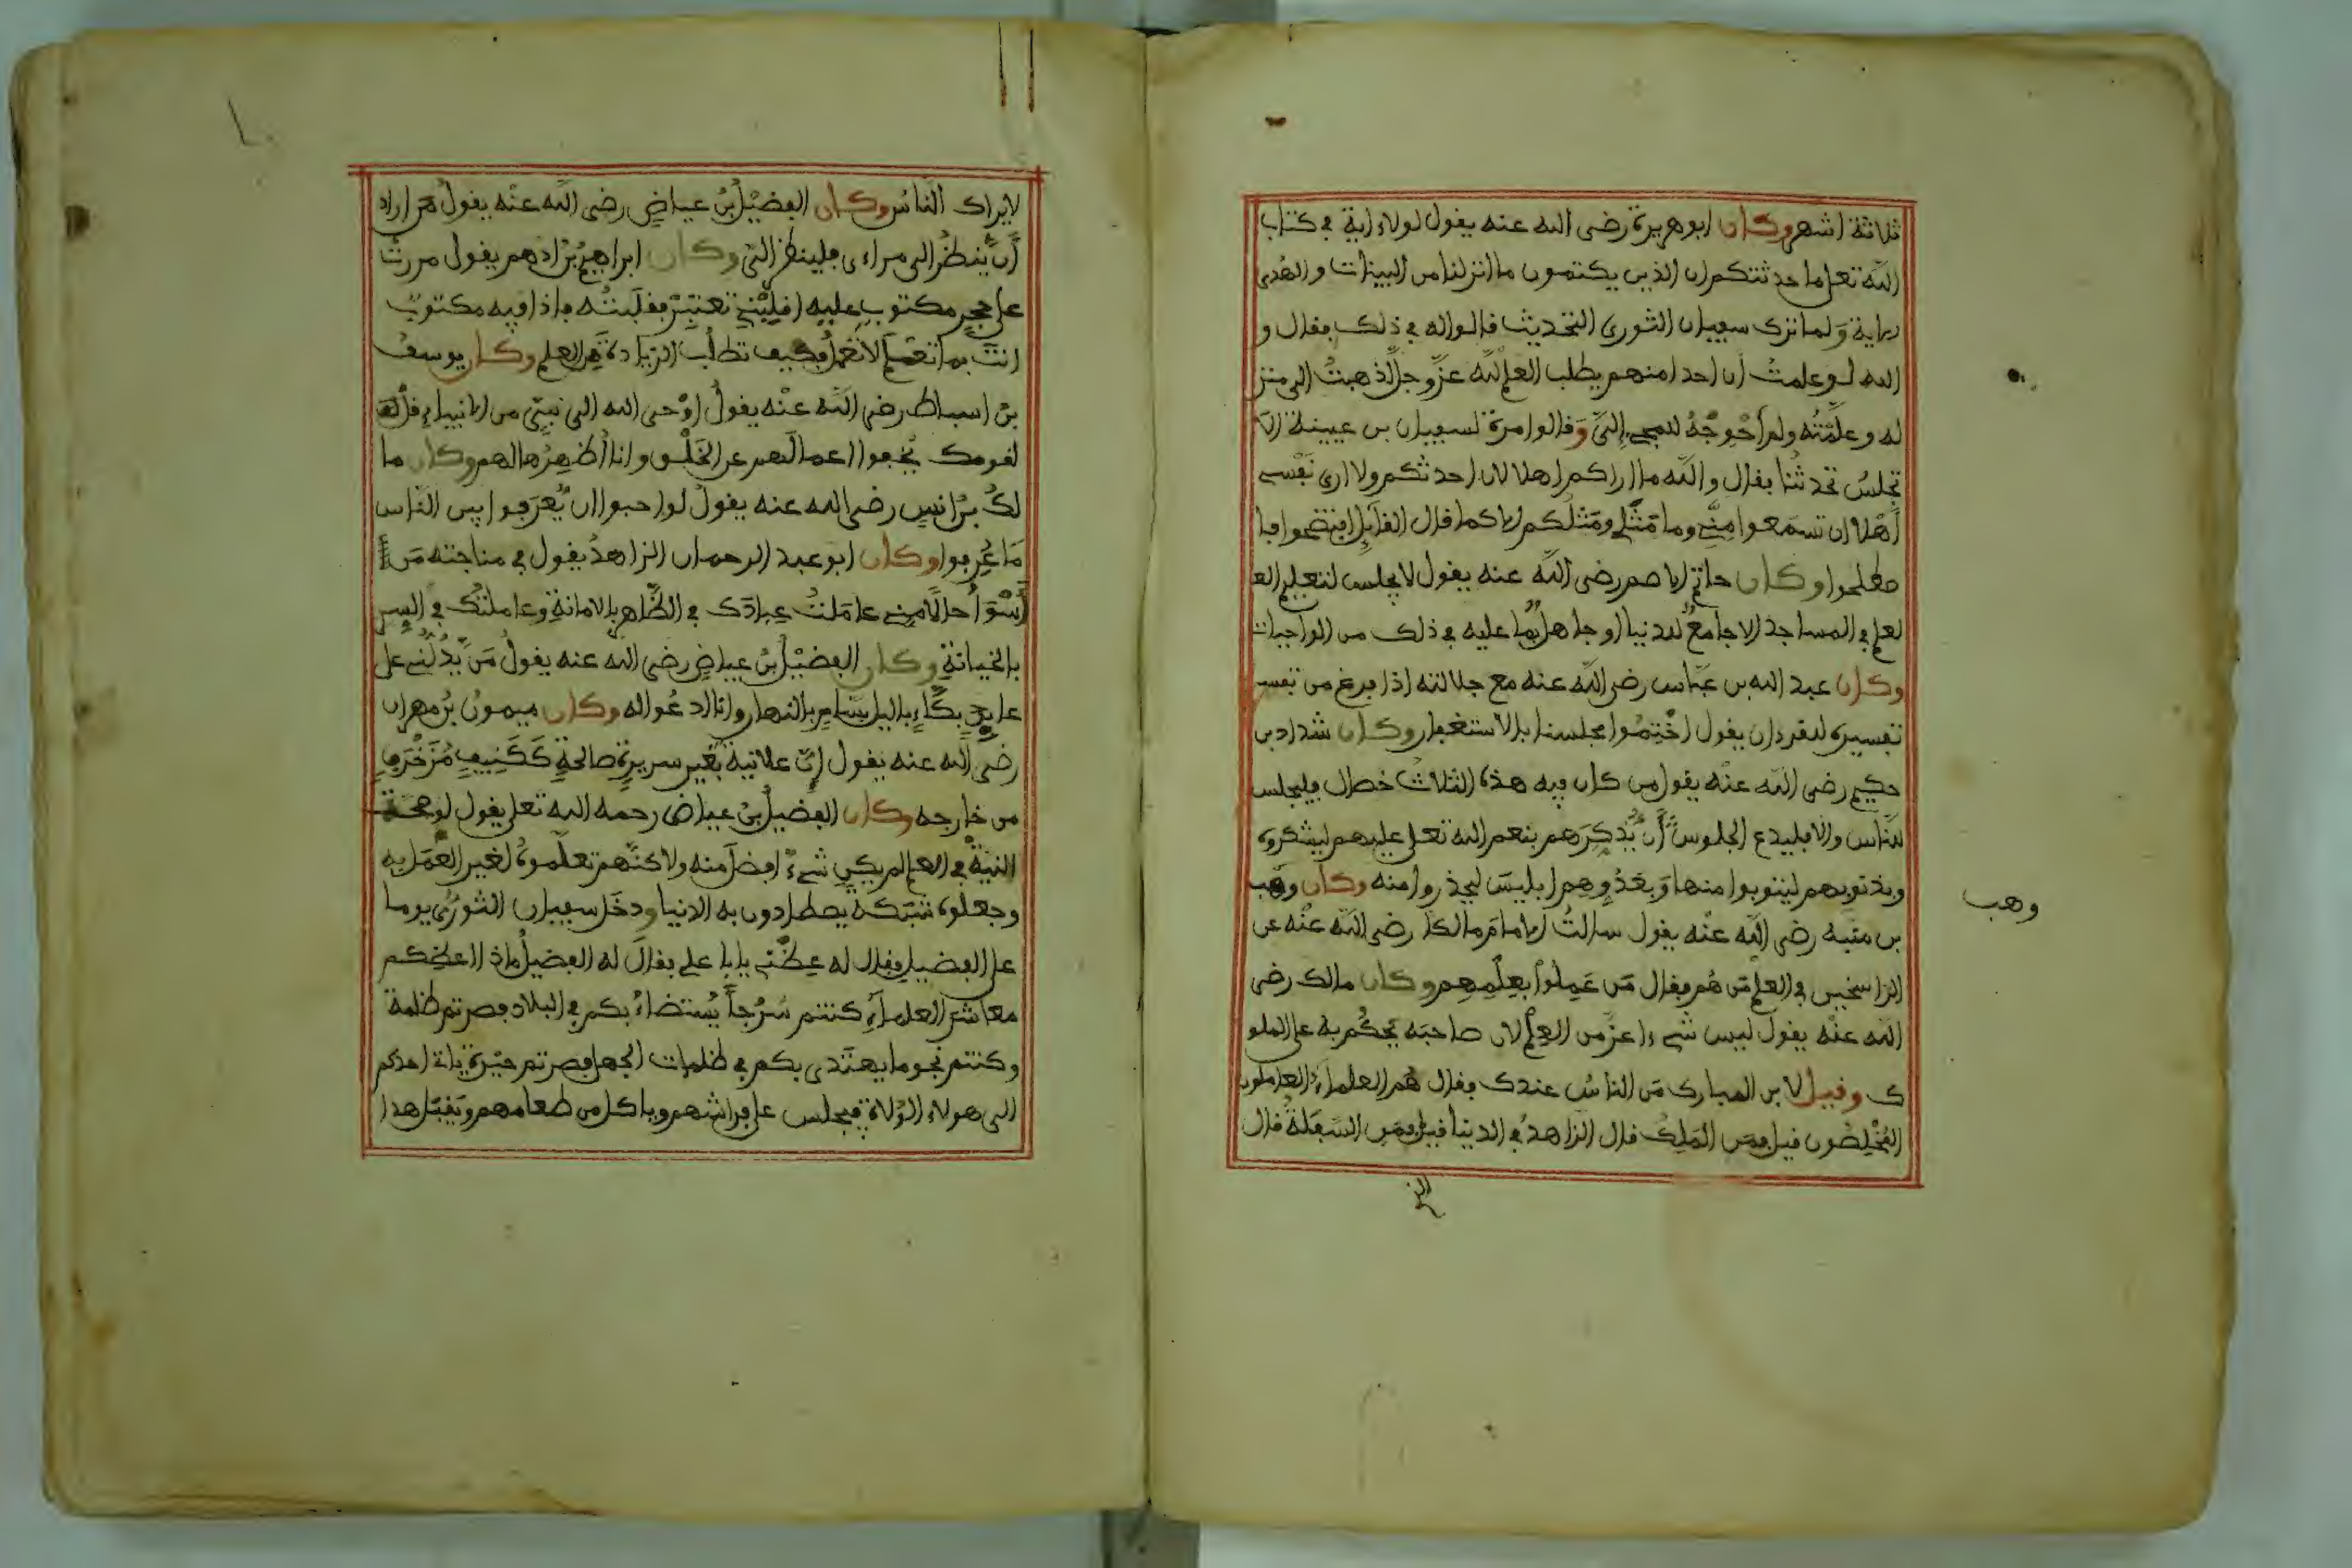 ثلاثة اشهر وكان ابو هريرة رضى الله عنه يقول لولا اية في كتاب
الله تعلى ما حدثتكم ان الذين يكتمون ما انزلنا من البينات والهدى
الاية ولما ترك سفيان الثوري التحديث قالوا له في ذلك فقال و
الله لو علمت أن احدا منهم يطلب العلم لله عز وجل لذهبت الى منز
له وعلمته ولم أحوجه للمجيء إلي وقالوا مرة لسفيان بن عيينة الا
تجلس تحدثنا فقال والله ما اراكم اهلا لان احدثكم ولا ارى نفسي
أهلا ان تسمعوا مني وما مثلي ومثلكم الا كما قال القائل افتضحوا فا
صطلحوا وكان حاتم الاصم رضى الله عنه يقول لا يجلس لتعليم الع
لعلم في المساجد الا جامع للدنيا او جاهل بما عليه في ذلك من الواجبات
وكان عبد الله بن عباس رضى الله عنه مع جلالته اذا فرغ من تفسير
تفسيره للقرءان يقول اختموا مجلسنا بالاستغفار وكان شداد بن
حكيم رضى الله عنه يقول من كان فيه هذه الثلاث خصال فليجلس
للناس والا فليدع الجلوس أن يذكرهم بنعم الله تعلى عليهم ليشكروه
وبذنوبهم ليتوبوا منها وبعدوهم ابليس ليحذروا منه وكان وهب
وهب
بن منبه رضى الله عنه يقول سالت الامام مالكا رضى الله عنه عن
الراسخين في العلم من هم فقال من عملوا بعلمهم وكان مالك رضى
الله عنه يقول ليس شيء اعز من العلم لان صاحبه يحكم به على الملو
ك وقيل لابن المبارك من الناس عندك فقال هم العلماء العاملون
المخلصون قيل فمن الملك قال الزاهد في الدنيا قيل فمن السفلة قال
لا يراك الناس وكان الفضيل بن عياض رضى الله عنه يقول من اراد
أن ينظر الى مراءى فلينظر الي وكان ابراهيم بن ادهم يقول مررت
على حجر مكتوب عليه اقلبني تعتبر فقلبته فاذا فيه مكتوب
انت بما تعلم لا تعمل فكيف تطلب الزيادة من العلم وكان يوسف
بن اسباط رضى الله عنه يقول اوحى الله الى نبي من الانبياء قل
لقومك يخفوا اعمالهم عن الخلق وانا أظهرها لهم وكان ما
لك بن انس رضى الله عنه يقول لو احبوا ان يعرفوا بين الناس
ما عرفوا وكان ابو عبد الرحمان الزاهد يقول في مناجته من
أسوأ حالا مني عاملت عبادك في الظاهر بالامانة وعاملتك في السر
بالخيانة وكان الفضيل بن عياض رضى الله عنه يقول من يدلني على
عابد بكاء باليل بسام بالنهار وانا ادعوا له وكان ميمون بن مهران
رضى الله عنه يقول إن علانية بغير سريرة صالحة ككنيف مزخرف
من خارجه وكان الفضيل بن عياض رحمه الله تعلى يقول لو صحة
النية في العلم لم يكن شيء افضل منه ولاكنهم تعلموه لغير العمل به
وجعلوه شبكة يصطادون به الدنيا ودخل سفيان الثوري يوما
على الفضيل فقال له عظني يا ابا علي فقال له الفضيل ماذا اعظكم
معاشر العلماء كنتم سرجا يستضاء بكم في البلاد فصرتم ظلمة
وكنتم نجوما يهتدى بكم في ظلمات الجهل فصرتم حيرة ياتي احدكم
الى هولاء الولاة فيجلس على فراشهم وياكل من طعامهم ويقبل هدا